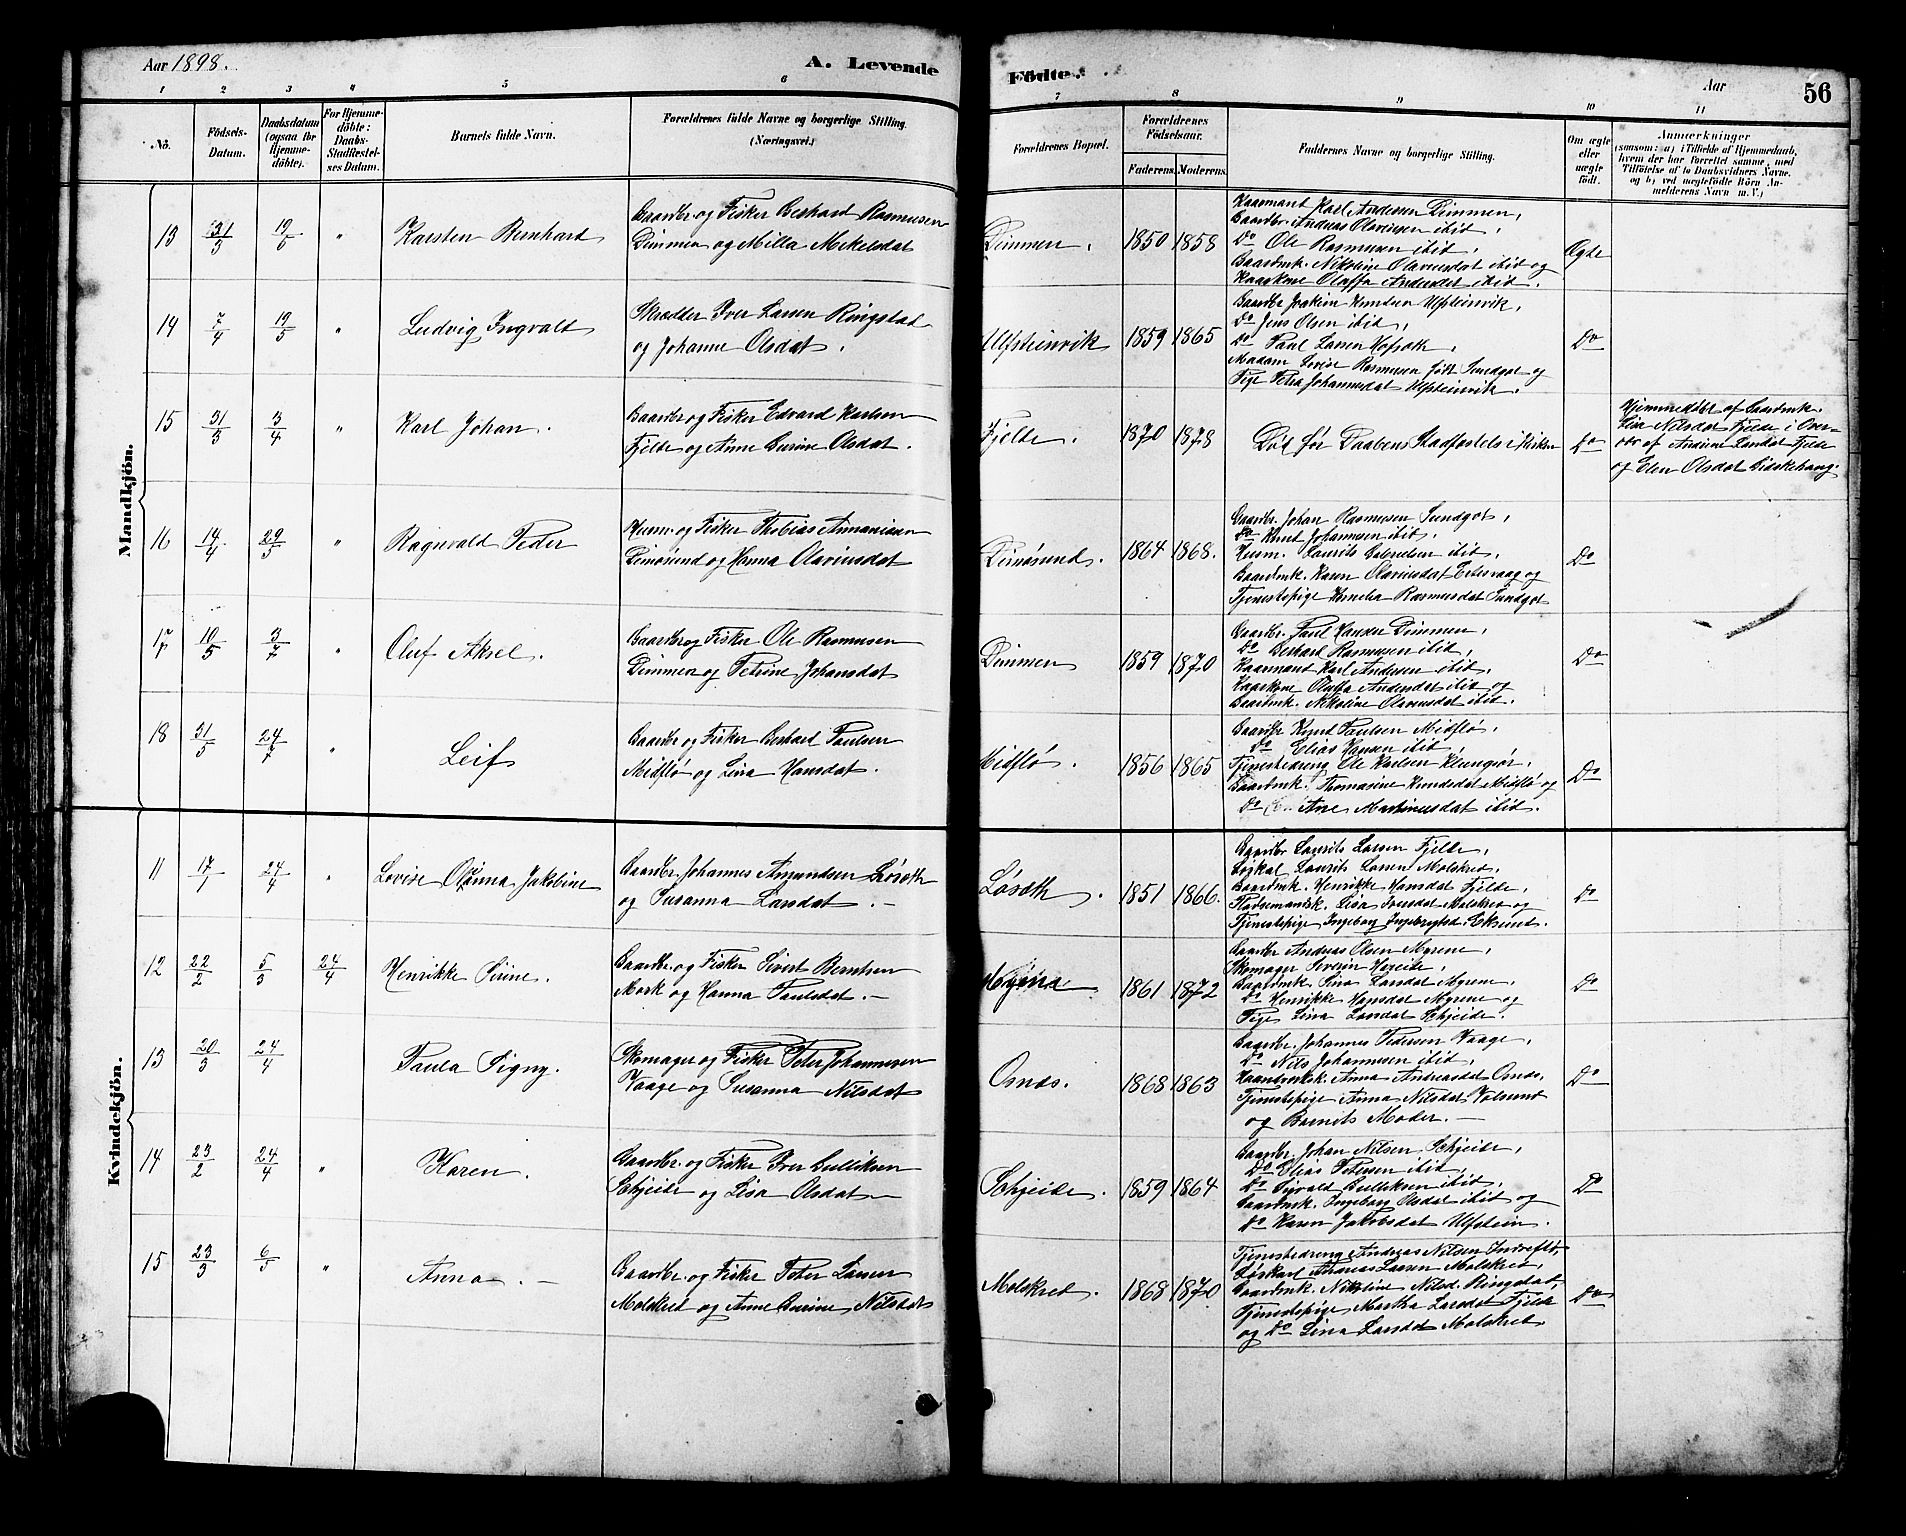 Aar 1898.
A. Levende
Födte.
Aar
56
1 2 3 4 5 6 7 8 9 10 11
No.
Födsels-
Datum.
Daabsdatum
(ogsaa for
Hjemme-
döbte).
For Hjemme-
döbte:
Daabs-
Stadfæstel-
ses Datum.
Barnets fulde Navn.
Forældrenes fulde Navne og borgerlige Stilling.
(Næringsvei.)
Forældrenes Bopæl.
Forældrenes
Födselsaar.
Faderens. Moderens.
Faddernes Navne og borgerlige Stilling.
Om ægte
eller
uægte
født.
Anmærkninger
(saasom: a) i Tilfælde af Hjemmedaab,
hvem der har forrettet samme, med
Tilföielse af to Daabsvidners Navne.
og b) ved uægtefödte Börn An-
melderens Navn m. V.)
Mandkjön.
13 31/3 19/5 " Karsten Bernhard
Gaardbr. og Fisker Berhard Rasmusen
Dimmen og Milla Mikelsdat
Dimmen. 1850 1858
Kaarmand Karl Andersen Dimmen,
Gaardbr. Andreas Olavinsen ibid,
Do Ole Rasmusen ibid,
Gaardmk. Nikoline Olavinsdat ibid og
Kaarkone Oluffa Andersdat ibid.
Ægte
14 7/4 19/5 " Ludvig Ingvald
Skrædder Iver Larsen Ringstad
og Johanne Olsdat.
Ulfsteinvik 1859 1865
Gaardbr Joakim Knudsen Ulfsteinvik,
Do Jens Olsen ibid,
Do Paul Larsen Hofseth,
Madam Lovise Rasmusen født Sundgot og
Pige Petra Johannesdat Ulfsteinvik.
Do
15 31/3 3/4 " Karl Johan.
Gaardbr. og Fisker Edvard Karlsen
Fjelde og Anne Gurine Olsdat.
Fjelde. 1870 1878
Død før Daabens Stadfæstelse i Kirken
Do
Hjemmedøbt af Gaardmk.
Lisa Nilsdat Fjelde i Over-
vær af Andrine Larsdat Fjelde
og Elen Olsdat Eidskehaug.
16 14/4 29/5 " Ragnvald Peder
Husm. og Fisker Thobias Amaniasen
Dimøsund og Hanna Olavinsdat
Dimøsund. 1864 1868.
Gaardbr. Johan Rasmusen Sundgot,
Do Knud Johannesen ibid,
Husm. Laurits Gabrielsen ibid,
Gaardmk. Karen Olavinsdat Eitrevaag og
Tjenestepige Kornelia Rasmusdat Sundgot
Do
17 10/5 3/7 " Oluf Aksel.
Gaardbr og Fisker Ole Rasmusen
Dimmen og Petrine Johansdat
Dimmen 1859 1870
Gaardbr. Paul Hansen Dimmen,
Do Berhard Rasmusen ibid,
Kaarmand Karl Andersen ibid,
Kaarkone Oluffa Andersdat ibid og
Gaardmk. Nikoline Olavinsdat ibid.
Do
18 31/5 24/7 " Leif
Gaardbr og Fisker Berhard Paulsen
Midflø og Lina Hansdat.
Midflø. 1856 1865
Gaardbr Knud Paulsen Midflø,
Do Elias Hansen ibid,
Tjenestedreng Ole Karlsen Klungsør,
Gaardmk. Thomasine Knudsdat Midflø og
Do Ane Martinusdat ibid.
Do
Kvindekjön.
11 17/1 24/4 " Lovise Olianna Jakobine
Gaardbr. Johannes Amundsen Løseth
og Susanna Larsdat.
Løseth. 1851 1866.
Gaardbr Laurits Larsen Fjelde,
Løskal Laurits Larsen Molskred,
Gaardmk. Henrikke Hansdat Fjelde,
Pladsemandsk. Lisa Iversdat Molskred og
Tjenestepige Ingeborg Ingebrigtsd. Eksund.
Do
12 22/2 5/3 24/4 Henrikke Sirine.
Gaardbr. og Fisker Sivert Berntsen
Mork og Hanna Paulsdat.
Myrene 1861 1872
Gaardbr Andreas Olsen Myrene,
Skomager Severin Hareide,
Gaardmk. Lina Larsdat Myrene,
Do Henrikke Hansdat Myrene og
Pige Lina Larsdat Skjeide.
Do
13 20/3 24/4 Paula Signy.
Skomager og Fisker Peter Johannesen
Vaage og Susanna Nilsdat
Osnes. 1868 1863
Gaardbr. Johannes Pedersen Vaage,
Do Nils Johannesen ibid,
Haandverksk. Anna Andreasdat Osnes,
Tjenestepige Anna Nilsdat Volsund
og Barnets Moder.
Do
14 23/2 24/4 " Karen.
Gaardbr. og Fisker Iver Gulliksen
Schjeide og Lisa Olsdat
Schjeide. 1859 1864
Gaardbr. Johan Nilsen Schjeide,
Do Elias Petersen ibid,
Do Sigvald Gulliksen ibid,
Gaardmk. Ingeborg Olsdat ibid og
Do Karen Jakobsdat Ulfstein.
Do
15 23/3 6/5 " Anna.
Gaardbr. og Fisker Peter Larsen
Molskred og Anne Gurine Nilsdat
Molskred. 1868 1870
Tjenestedreng Andreas Nilsen Indreflø,
Løskarl Andreas Larsen Molskred,
Gaardmk. Nikoline Nilsd. Ringstad,
Tjenestepige Martha Larsdat Fjelde
og Do Lina Larsdat Molskred.
Do